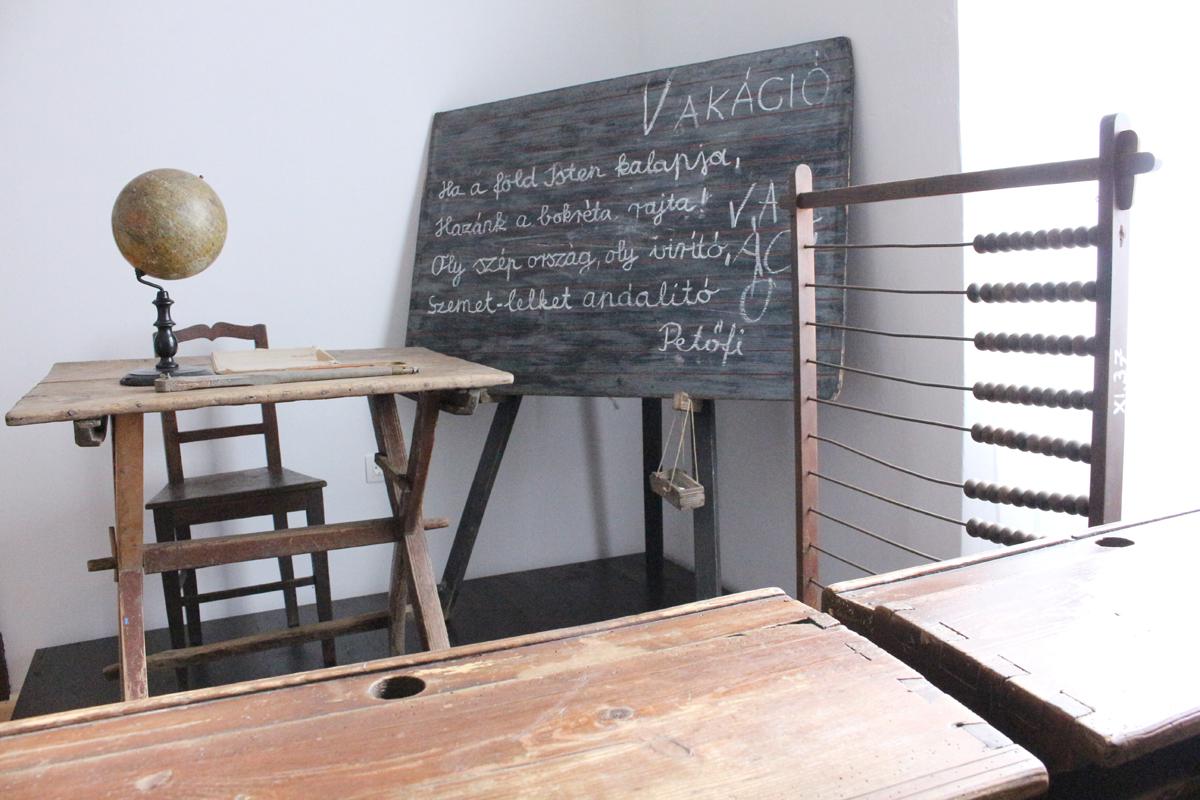 VAKÁCIÓ
Ha a föld Isten kalapja,
Hazánk a bokréta rajta!
Oly szép ország, oly virító,
Szemet-lelket andalító
Petőfi
VA
ÁC
XI.37